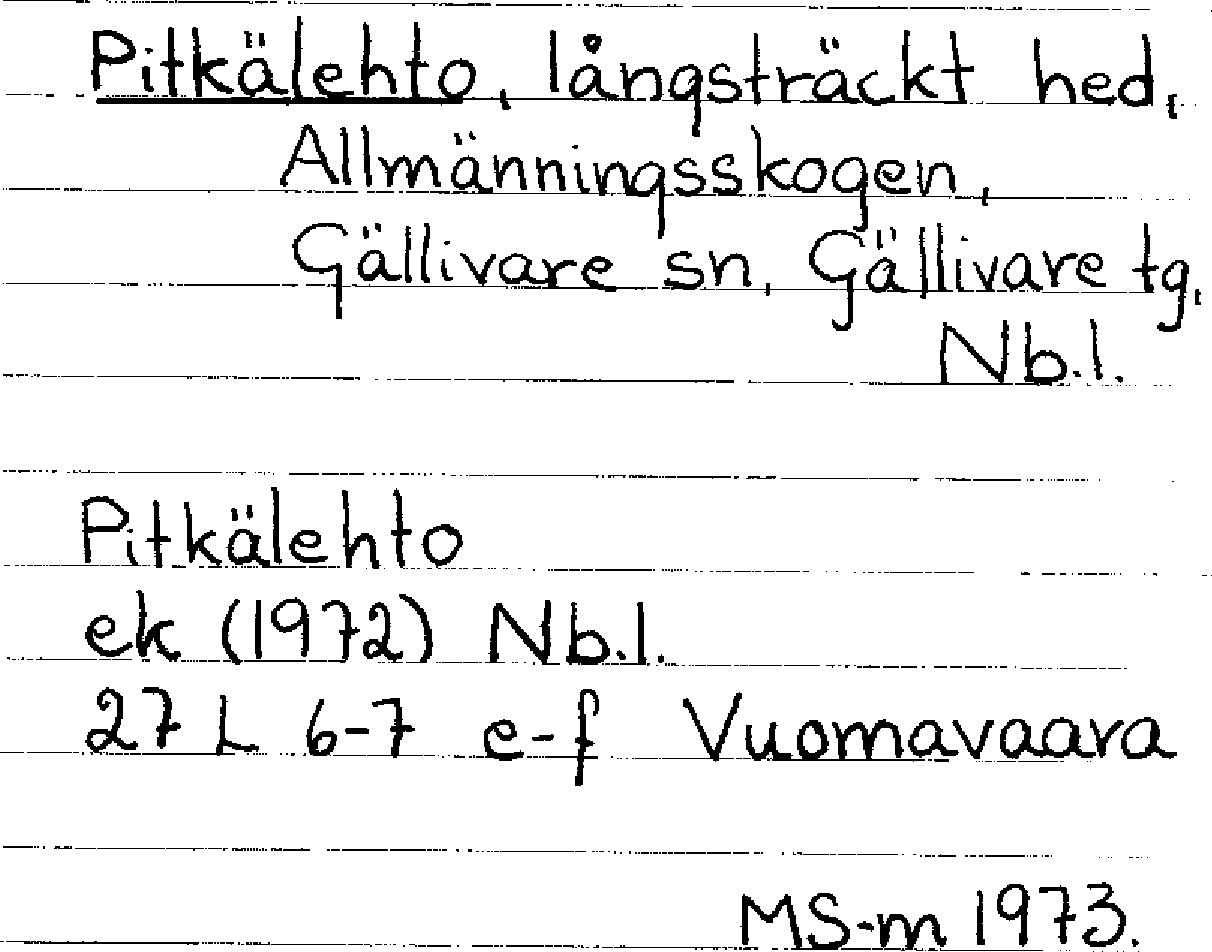 Pitkälehto, långsträckt hed,
Allmänningsskogen,
Gällivare sn, Gällivare tg,
Nb.l.
Pitkälehto
ek (1972) Nb.l.
27 L 6-7 e-f Vuomavaara
MS-m 1973.